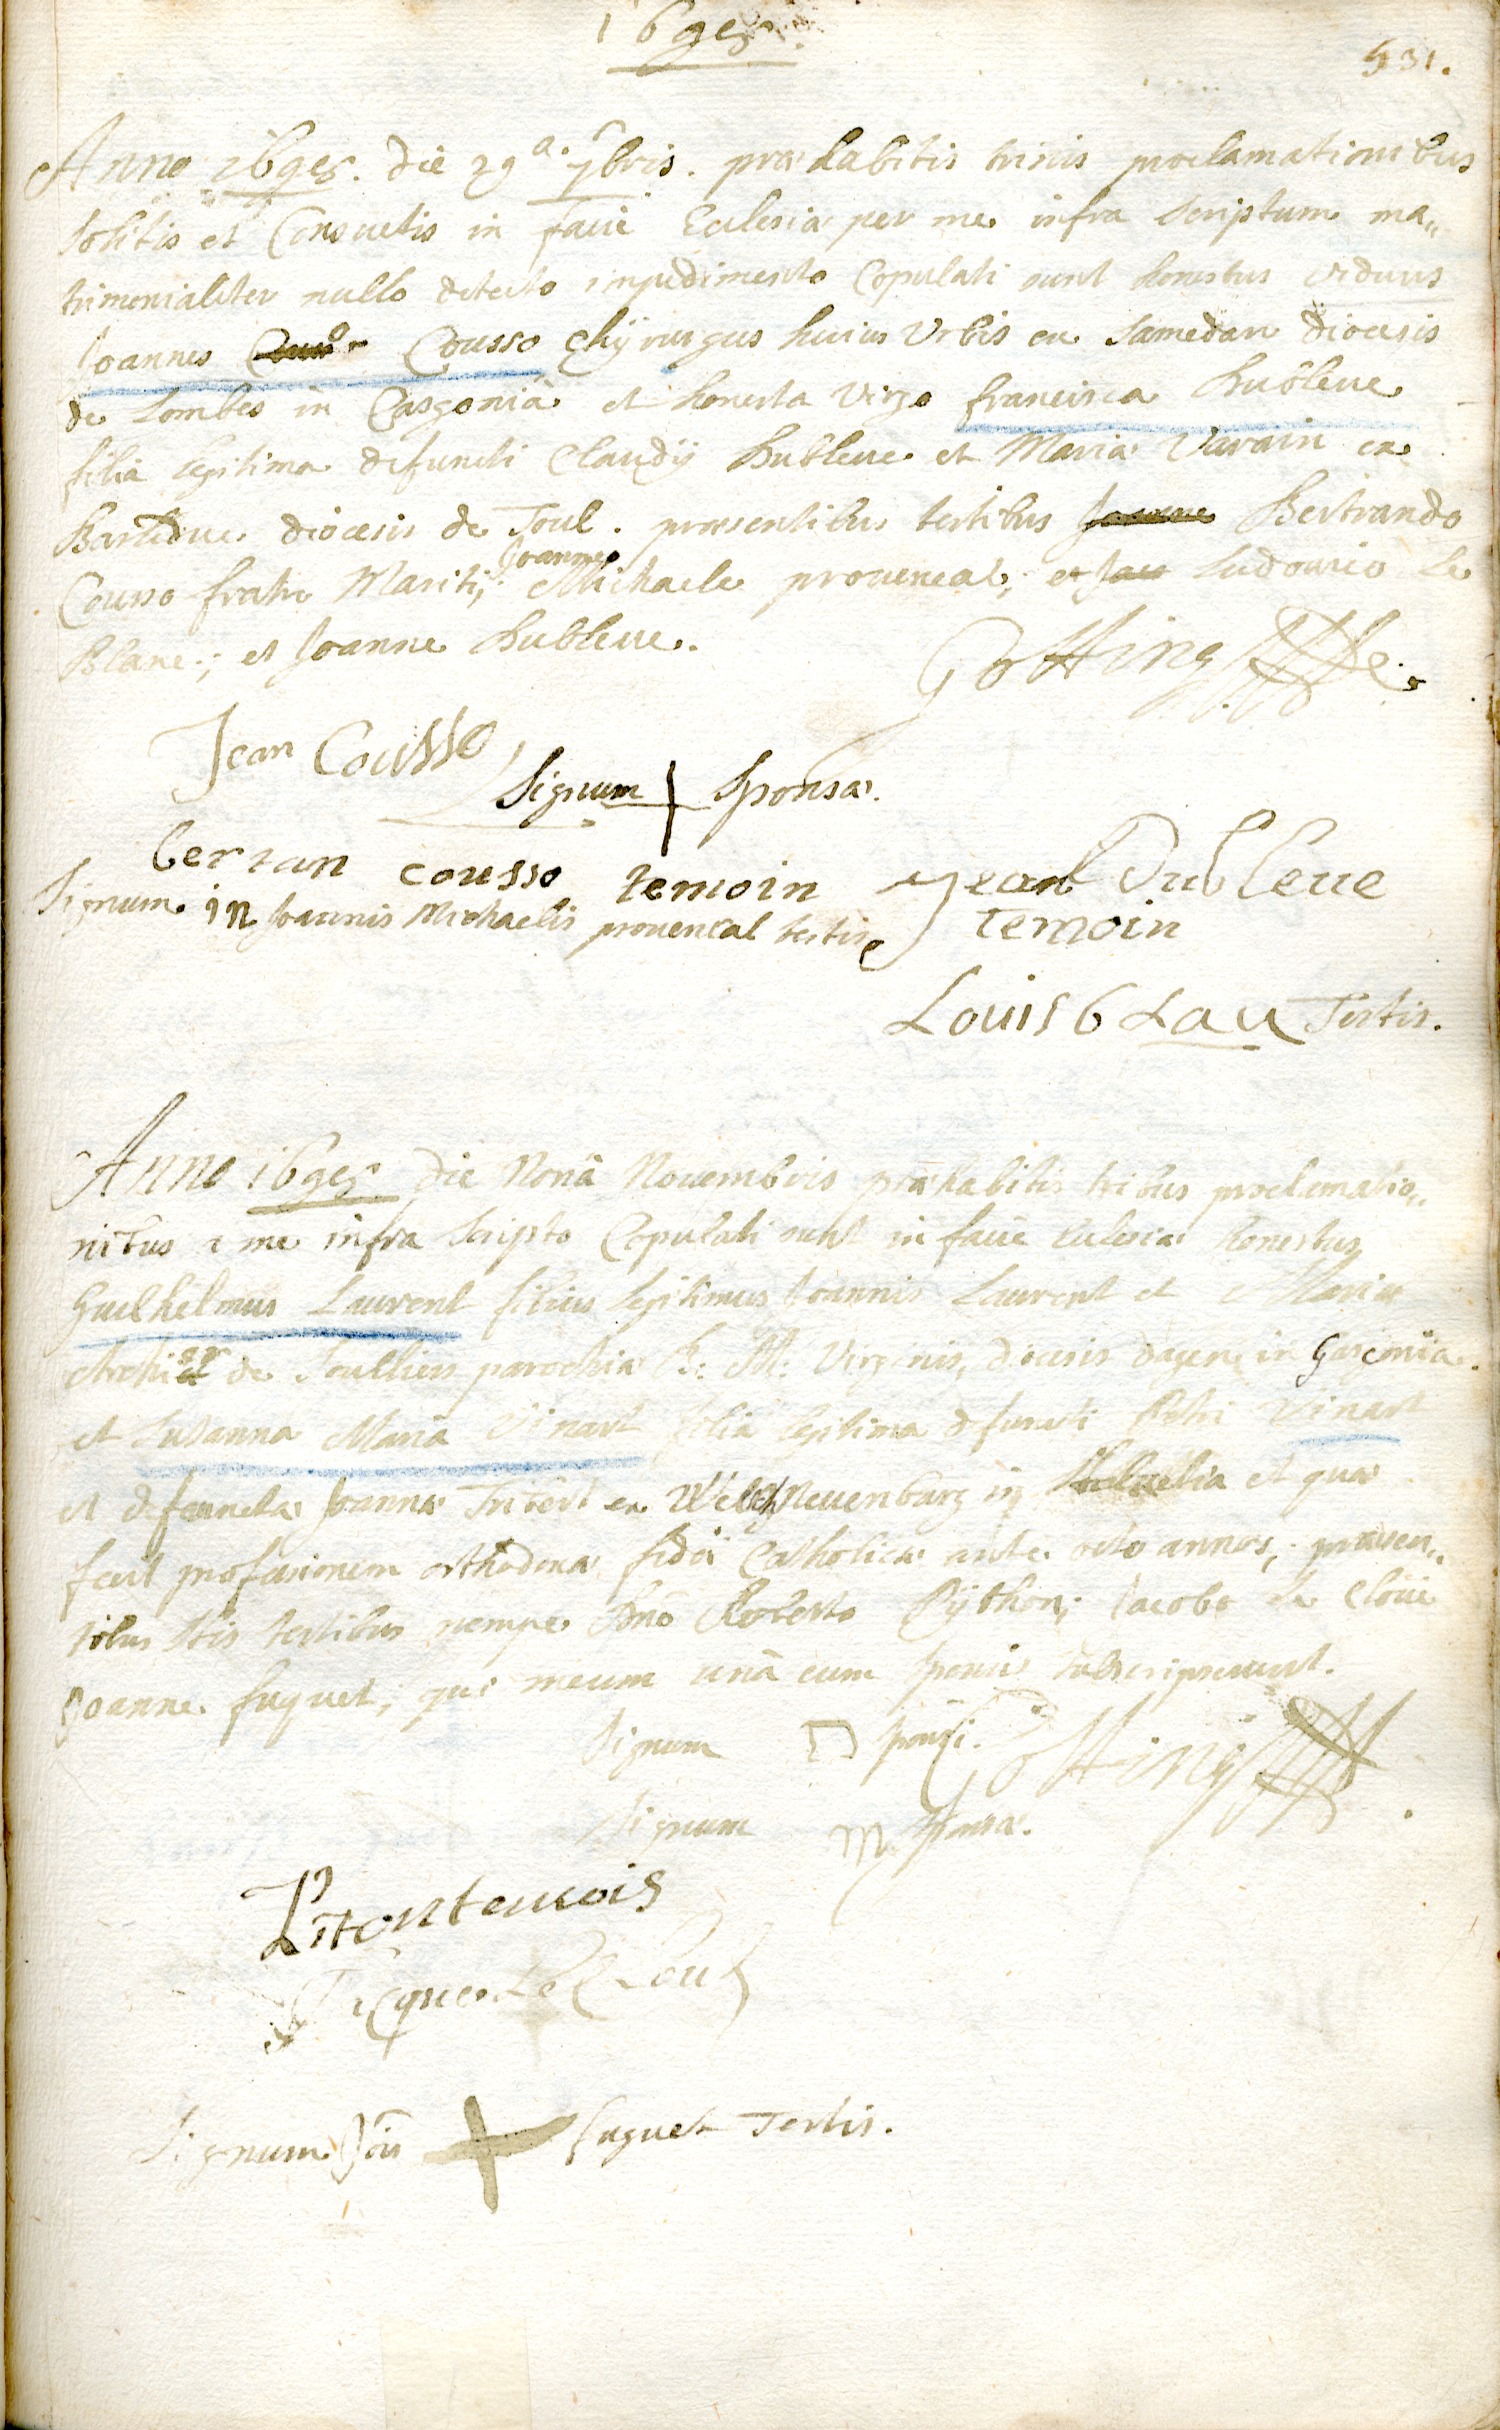 1695.
531.
Anno 1695. die 29a. 7bris. præhabitis trinis proclamationibus
solitis et Consuetis in facie Ecclesiæ per me infra scriptum ma„
trimonialiter nullo detecto impedimento Copulati sunt honestus viduus
Joannes Cousso Chÿrurgus huius Urbis ex Samedan diocesis
de Lombes in Casgoniâ et honesta Virgo francisca Dubleue
filia legitima defuncti Claudÿ Dubleue et Maria Varain ex
Barleduc diocesis de Toul. præsentibus testibus Joanne Bertrando
Cousso fratre Mariti, Joanne Michaele prouencal; et Jac Ludouico le
Blanc; et Joanne Dubleue.
Gotting
Jean Cousso
Signum + Sponsæ.
bertan cousso temoin
Jean Dubleue
temoin
Signum in Joannis Michaelis prouencal testis
Louis b Lau Testis.
Anno 1695. die Nonâ Nouembris præhabitis tribus proclamatio„
nibus a me infra scripto Copulati sunt in facie Ecclesiæ honestus
Guelhelmus Laurent filius legitimus Joannis Laurent et Mariæ
de Soulliers parochiæ B. M. Virginis, diocesis dagen in Gasconiæ.
et Susanna Maria Vinart filia legitima defuncti Petri Vinart
et defunctæ Joannæ ex Welchneuenburg in Heluetia et quæ
fecit professionem orthodoxæ fidei Catholicæ ante octo annos, præsen„
tibus testibus nempe Dno Roberto Pÿthon; Jacobo le Cloüe
Joanne fuguet, qui mecum unâ cum sponsis subscripserunt.
Signum sponsi.
Gotting
Signum m sponsæ.
Jacque Le Clou
Signum Jois + fuguet Testis.